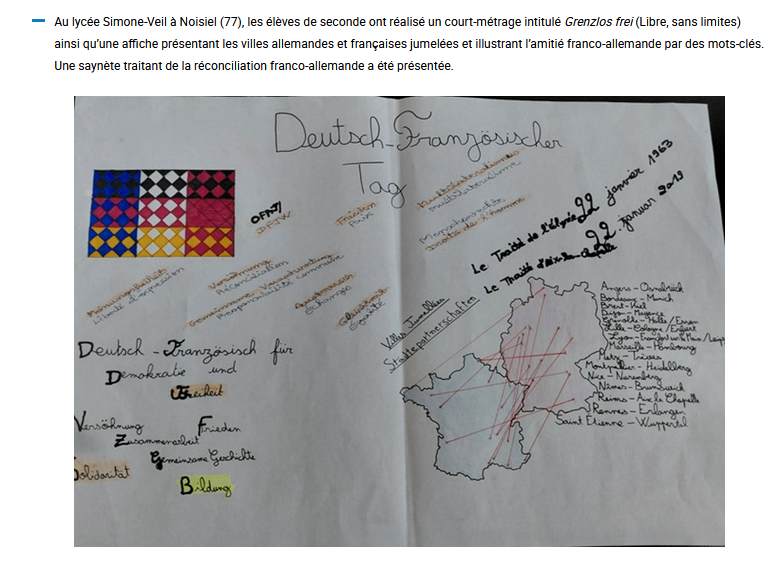 Au lycée Simone-Veil à Noisiel (77), les élèves de seconde ont réalisé un court-métrage intitulé Grenzlos frei (Libre, sans limites)
ainsi qu'une affiche présentant les villes allemandes et françaises jumelées et illustrant l'amitié franco-allemande par des mots-clés.
Une saynète traitant de la réconciliation franco-allemande a été présentée.
Deutsch-Französischer
Tag
OFAJ/
DFJW
Frieden
Paix
Multilateralismus
Multilatéralisme
Menschenrechte
Droits de l'homme
Le Traité de l'Elysée 22 janvier 1963
Le Traité d'Aix-la-Chapelle 22. januar 2019
Meinungsfreiheit
Liberté d'expression
Versöhnung
Réconciliation
Gemeinsame Verantwortung
Responsabilité commune
Austausch
Echanges
Gleichheit
Egalité
Villes Jumelées
Städtepartnerschaften
Angers - Osnabrück
Bordeaux - Munich
Brest - Kiel
Dijon - Mayence
Grenoble - Halle / Essen
Lille - Cologne / Erfurt
Lyon - Francfort
Marseille - Hambourg
Metz - Trèves
Montpellier - Heidelberg
Nice - Nuremberg
Nîmes - Brunswick
Reims - Aix la Chapelle
Rennes - Erlangen
Saint Étienne - Wuppertal
Deutsch - Französisch für
Demokratie und
Freiheit
Versöhnung Frieden
Zusammenarbeit
Gemeinsame Geschichte
Solidarität
Bildung